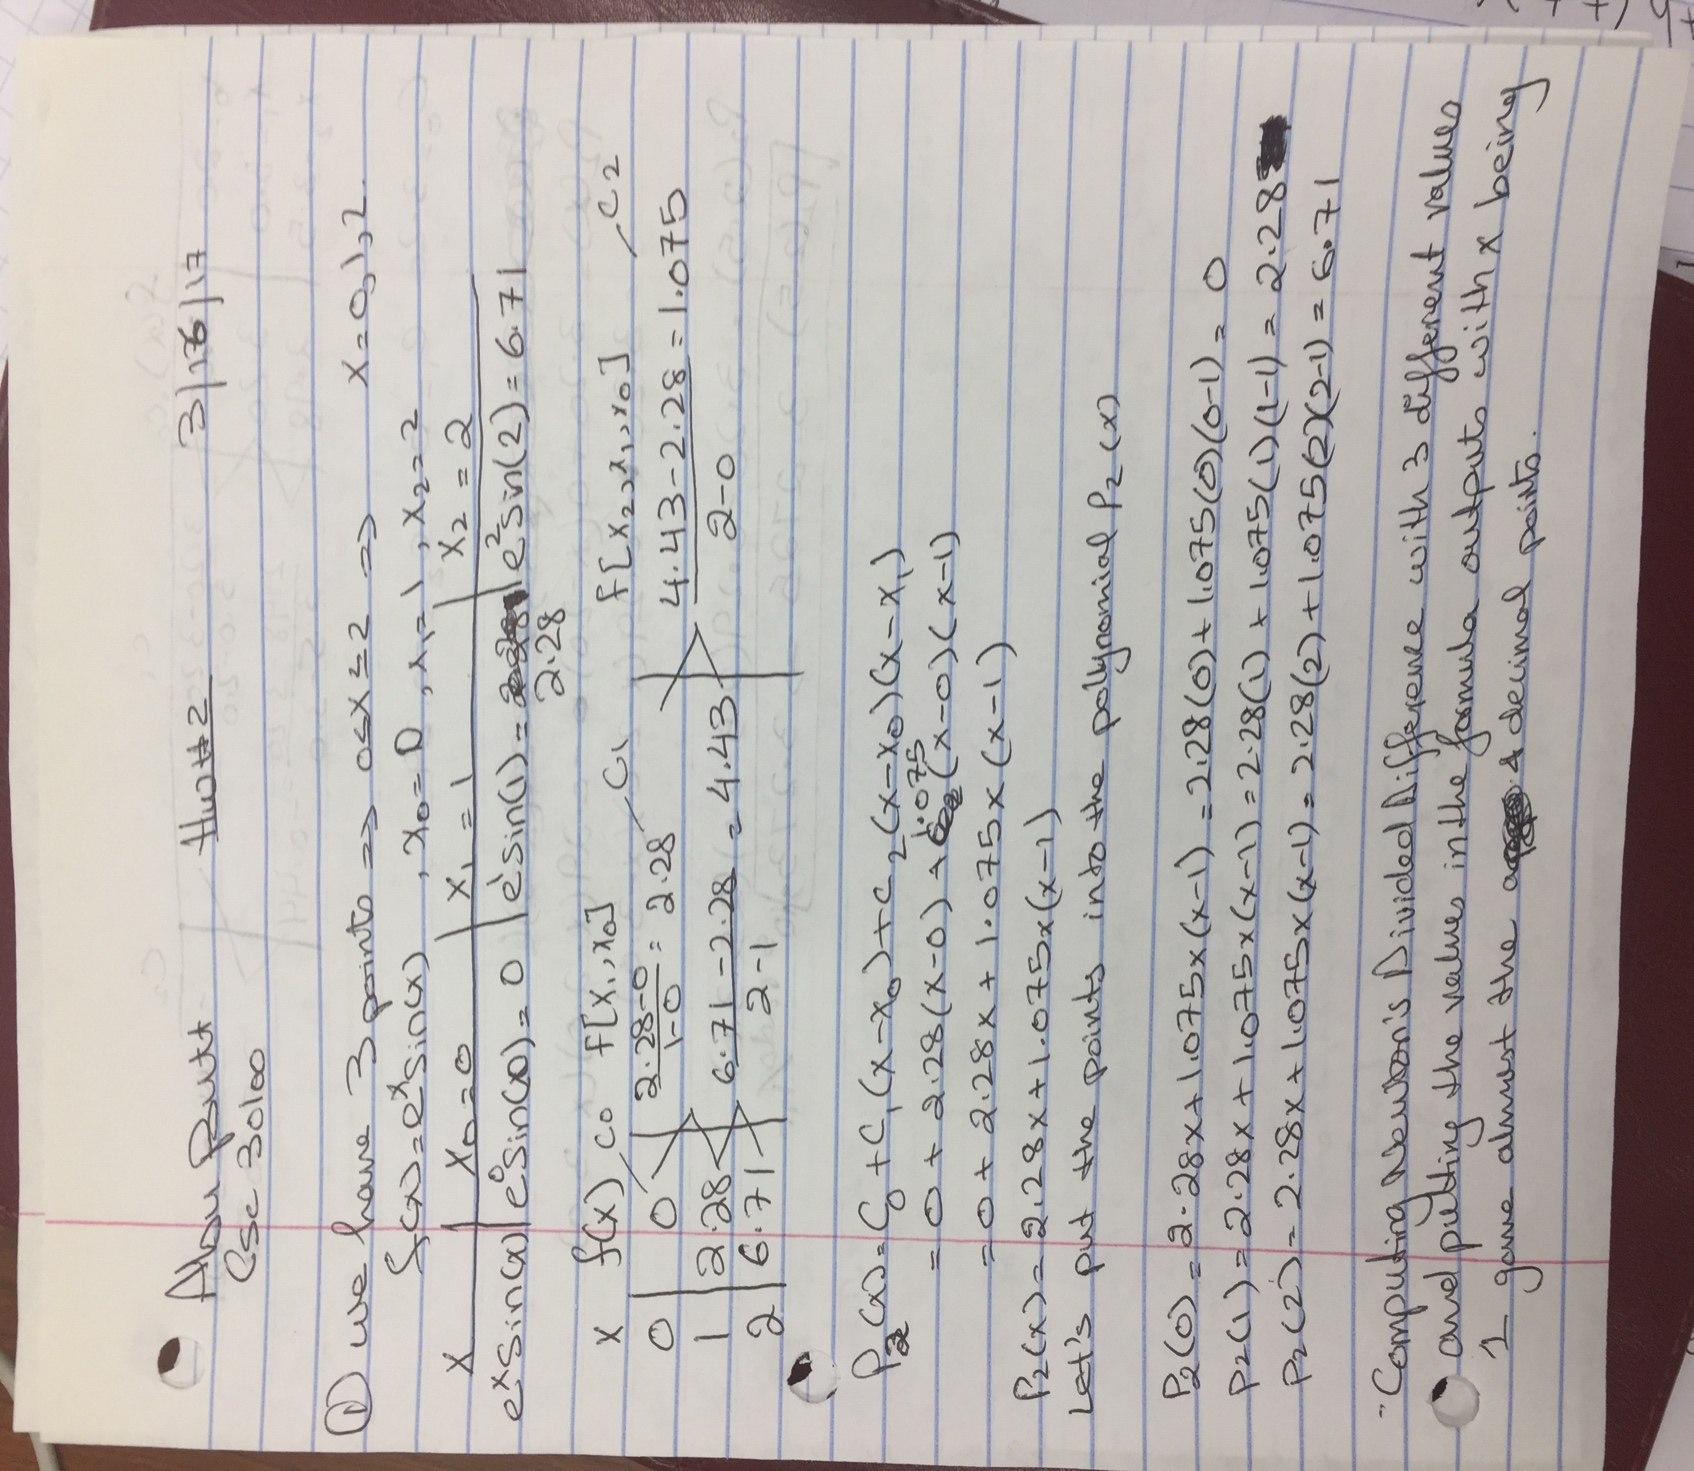 Abou Butt HW#2 3/16/17
CSC 30100
① we have 3 points => 0≤x≤2 => x=0,1,2
f(x)=e^x sin(x) , x₀=0, x₁=1, x₂=2
x | x₀=0 | x₁=1 | x₂=2
e^x sin(x) | e^0 sin(0)=0 | e^1 sin(1)= 2.28 | e^2 sin(2)=6.71
x f(x) C₀ f[x₁,x₀] C₁ f[x₂,x₁,x₀] C₂
0 | 0 | (2.28-0)/(1-0) = 2.28
1 | 2.28 | | (4.43-2.28)/(2-0) = 1.075
2 | 6.71 | (6.71-2.28)/(2-1) = 4.43
P₂(x)=C₀+C₁(x-x₀)+C₂(x-x₀)(x-x₁)
=0+2.28(x-0)+1.075(x-0)(x-1)
=0+2.28x+1.075x(x-1)
P₂(x)=2.28x+1.075x(x-1)
Let's put the points into the pollynomial P₂(x)
P₂(0)=2.28x+1.075x(x-1)=2.28(0)+1.075(0)(0-1)=0
P₂(1)=2.28x+1.075x(x-1)=2.28(1)+1.075(1)(1-1)=2.28
P₂(2)=2.28x+1.075x(x-1)=2.28(2)+1.075(2)(2-1)=6.71
"Computing Newton's Divided Difference with 3 different values
and putting the values in the formula outputs with x being
I gave almost the 4 decimal points.